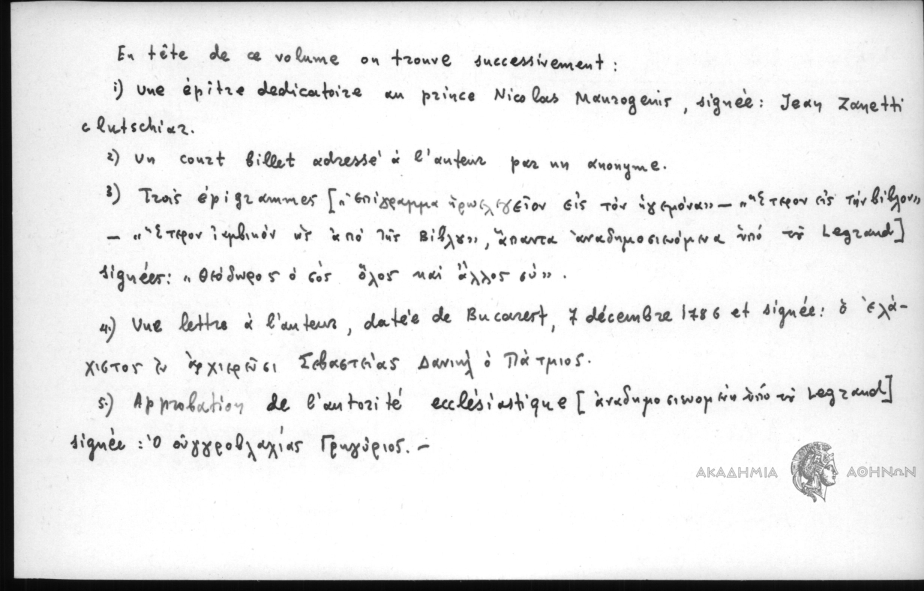 En tête de ce volume on trouve successivement :
1) Une épitre dedicatoire au prince Nicolas Maurogenis, signée: Jean Zanetti
clutschiar.
2) Un court billet adressé à l'auteur par un anonyme.
3) Trois épigrammes [„ἐπίγραμμα ἡρωελεγεῖον εἰς τὸν ἡγεμόνα» — „Ἕτερον εἰς τὴν βίβλον»
— „Ἕτερον ἰαμβικὸν ὡς ἀπὸ τῆς Βίβλου», ἅπαντα ἀναδημοσιευόμενα ὑπὸ τοῦ Legrand]
signées: „Θεόδωρος ὁ σὸς ὅλος καὶ ἄλλος σύ».
4) Une lettre à l'auteur, datée de Bucarest, 7 décembre 1786 et signée: ὁ ἐλά-
χιστος ἐν ἀρχιερεῦσι Σεβαστείας Δανιὴλ ὁ Πάτμιος.
5) Approbation de l'autorité ecclésiastique [ἀναδημοσιευομένη ὑπὸ τοῦ Legrand]
signée : Ὁ οὑγγροβλαχίας Γρηγόριος. —
ΑΚΑΔΗΜΙΑ ΑΘΗΝΩΝ